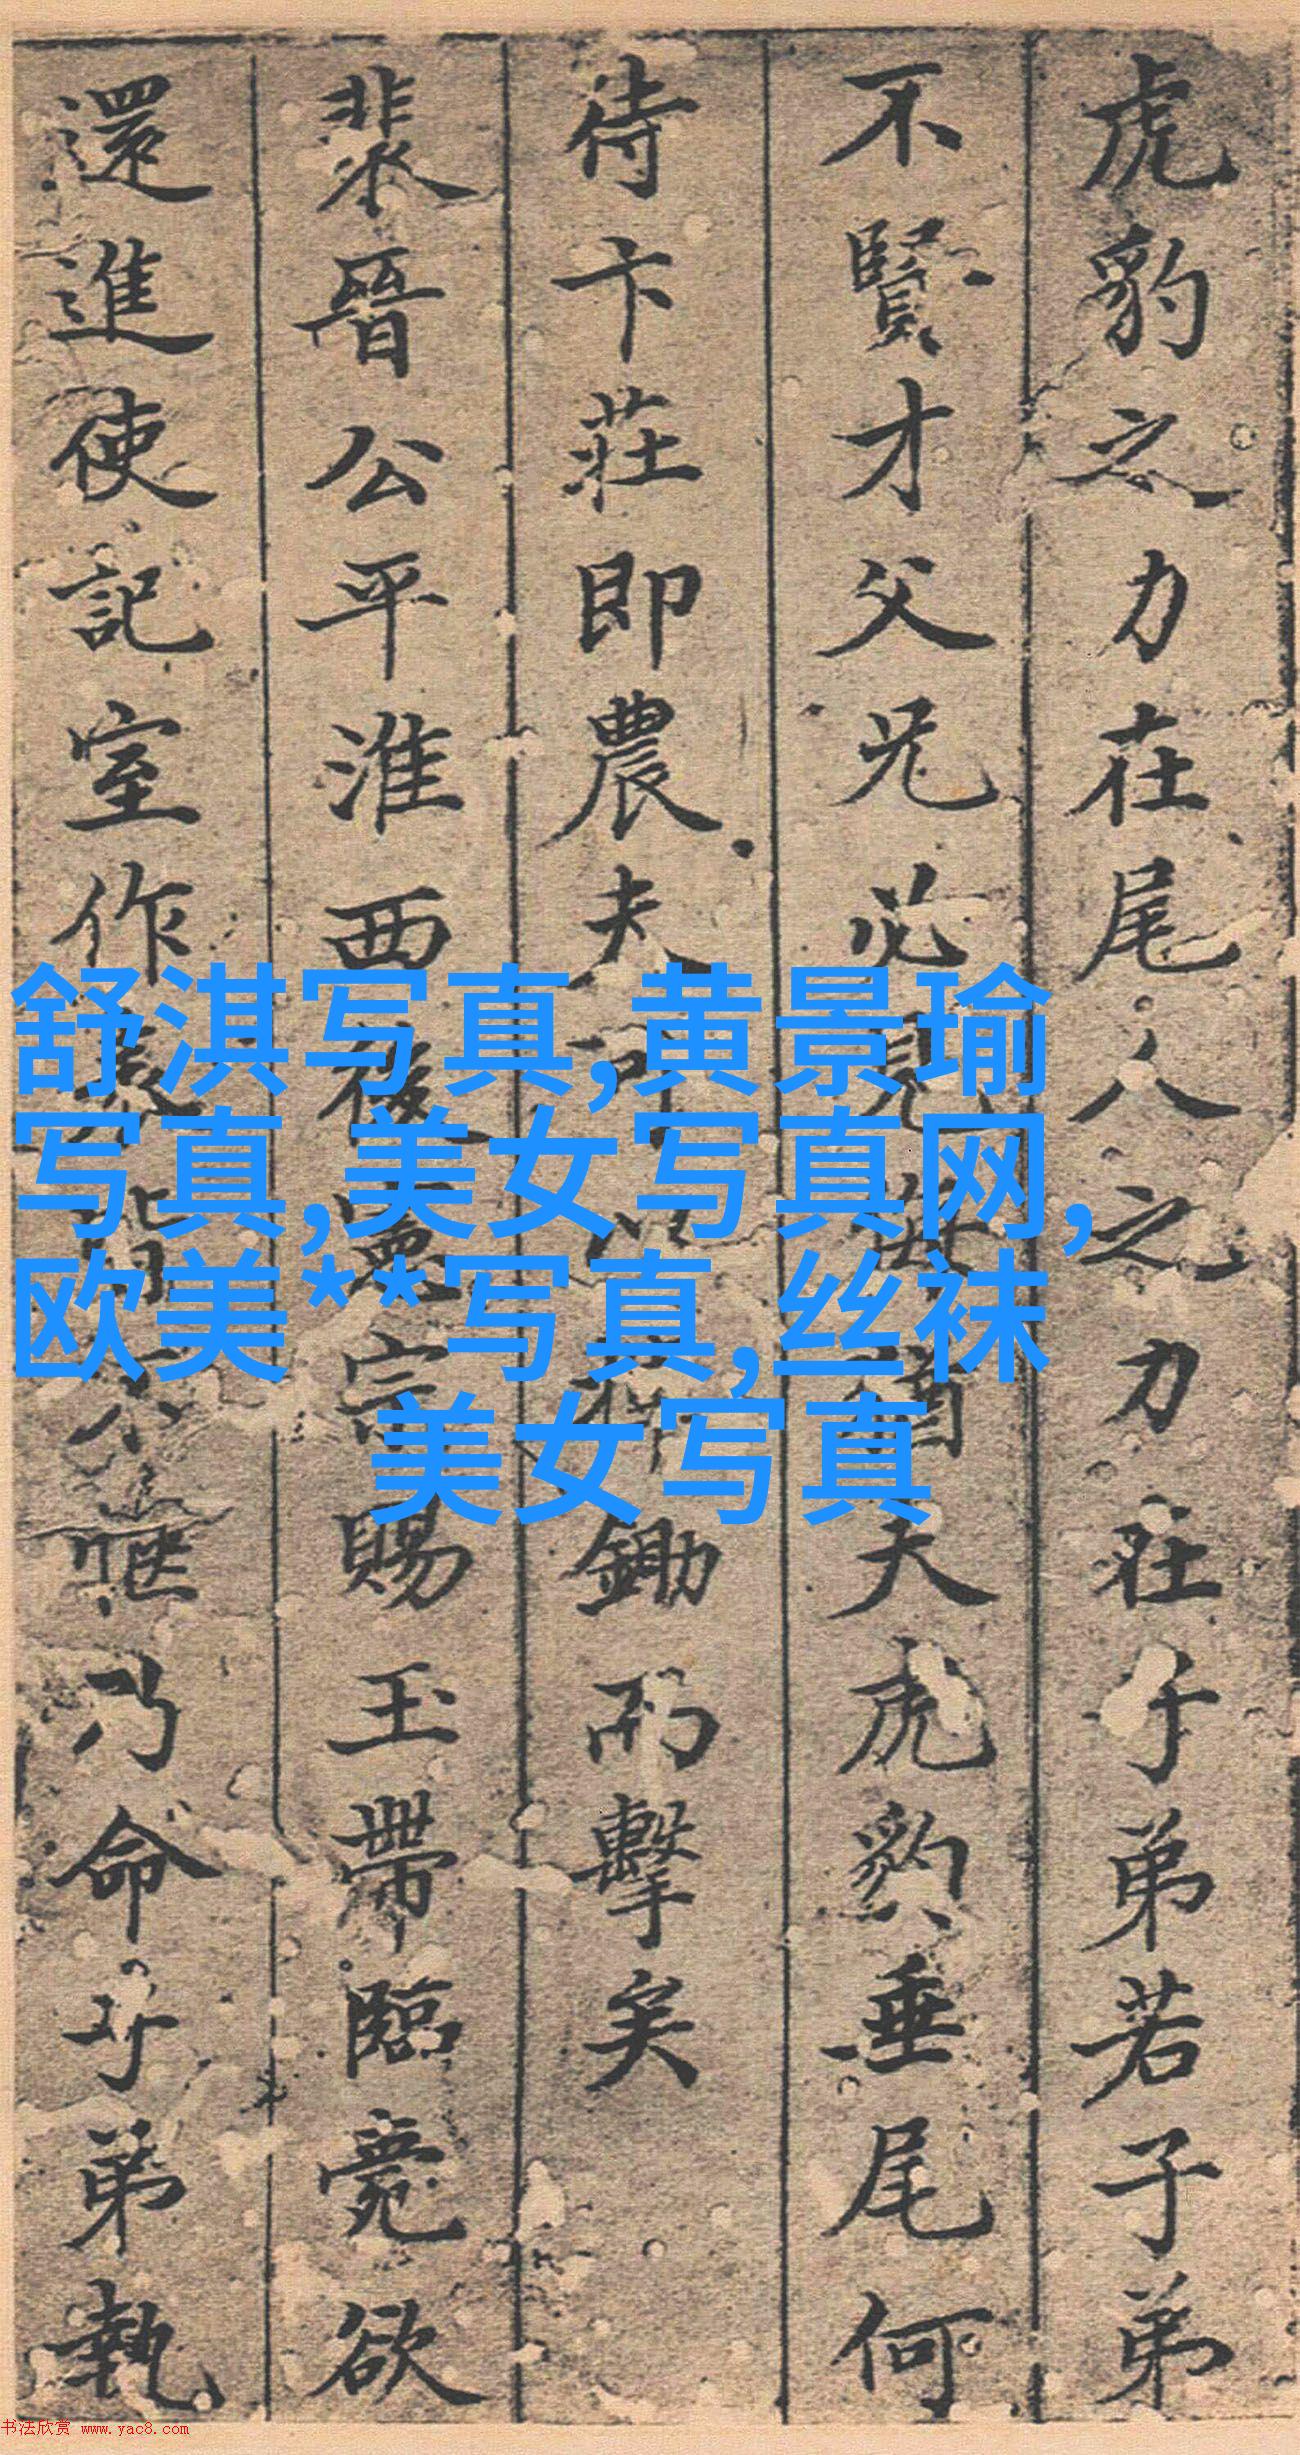 虎豹之力在尾人之力在子弟若子弟
不賢才父兄必見猶夫虎豹垂尾何
待卞莊即農夫可以鋤而擊矣
裴晉公平淮西後憲宗賜玉帶臨薨欲
還進使記室作表皆不愜乃命子弟執
舒淇写真,黄景瑜
写真,美女写真网,
欧美**写真,丝袜
美女写真
书法欣赏 www.yac8.com